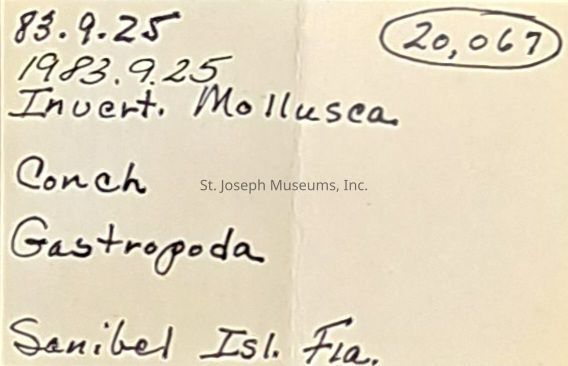 83.9.25
20,067
1983.9.25
Invert. Mollusca
Conch
St. Joseph Museums, Inc.
Gastropoda
Sanibel Isl. Fla.